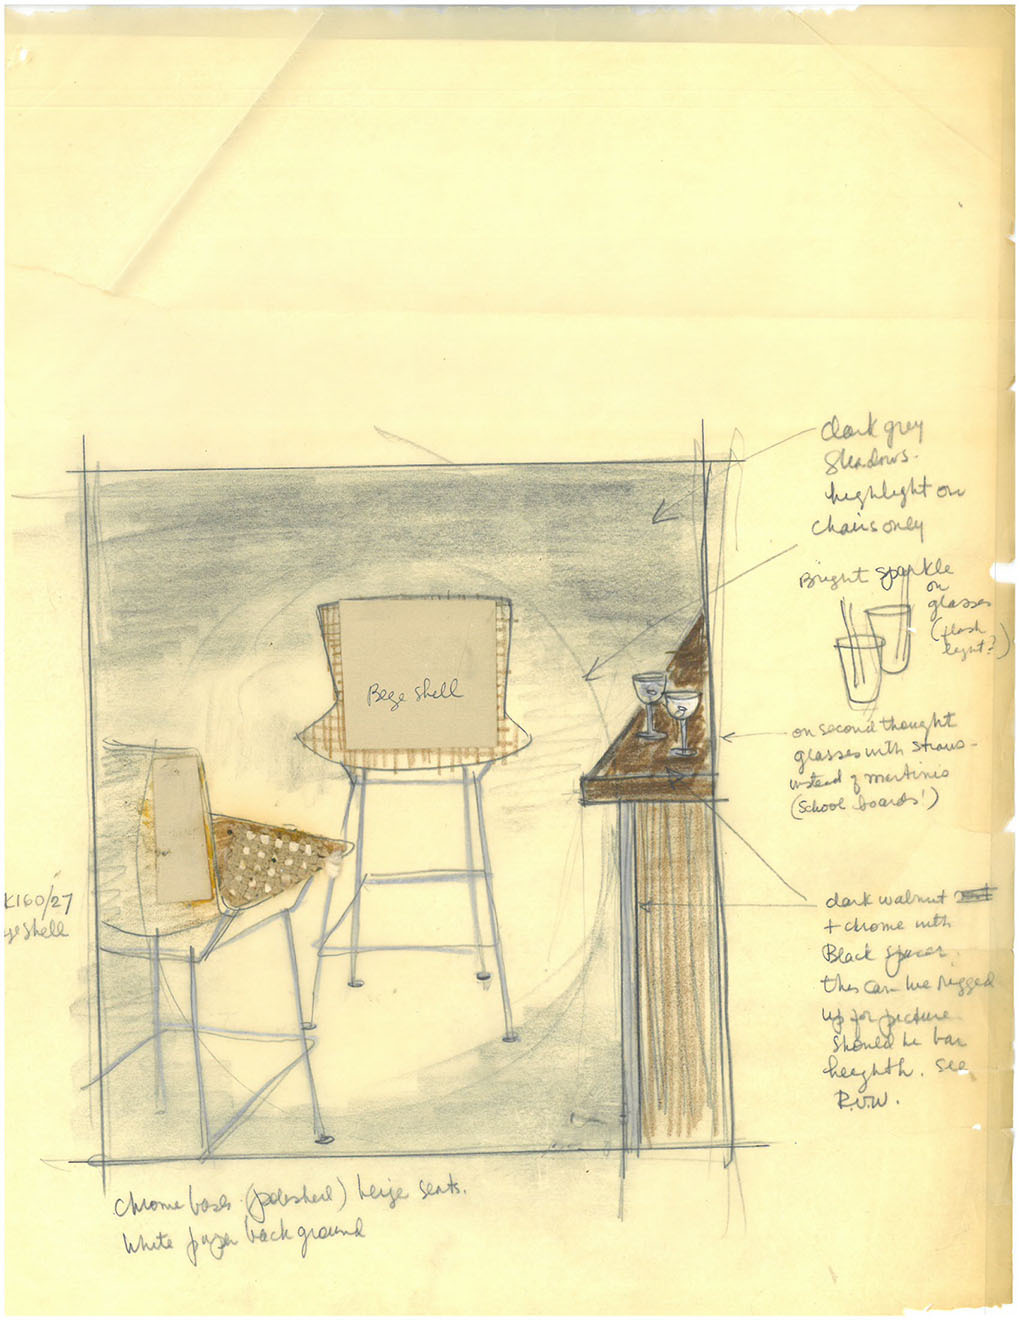 dark grey
shadows.
highlight on
chairs only
Bright sparkle
on
glasses
(flash
light?)
Bege shell
on second thought
glasses with straws -
instead of martinis
(school boards!)
K160/27
ge shell
dark walnut
+ chrome with
Black spacer.
this can be rigged
up for picture
should be bar
heighth. see
R.V.W.
chrome bases (polished) beige seats.
White paper background